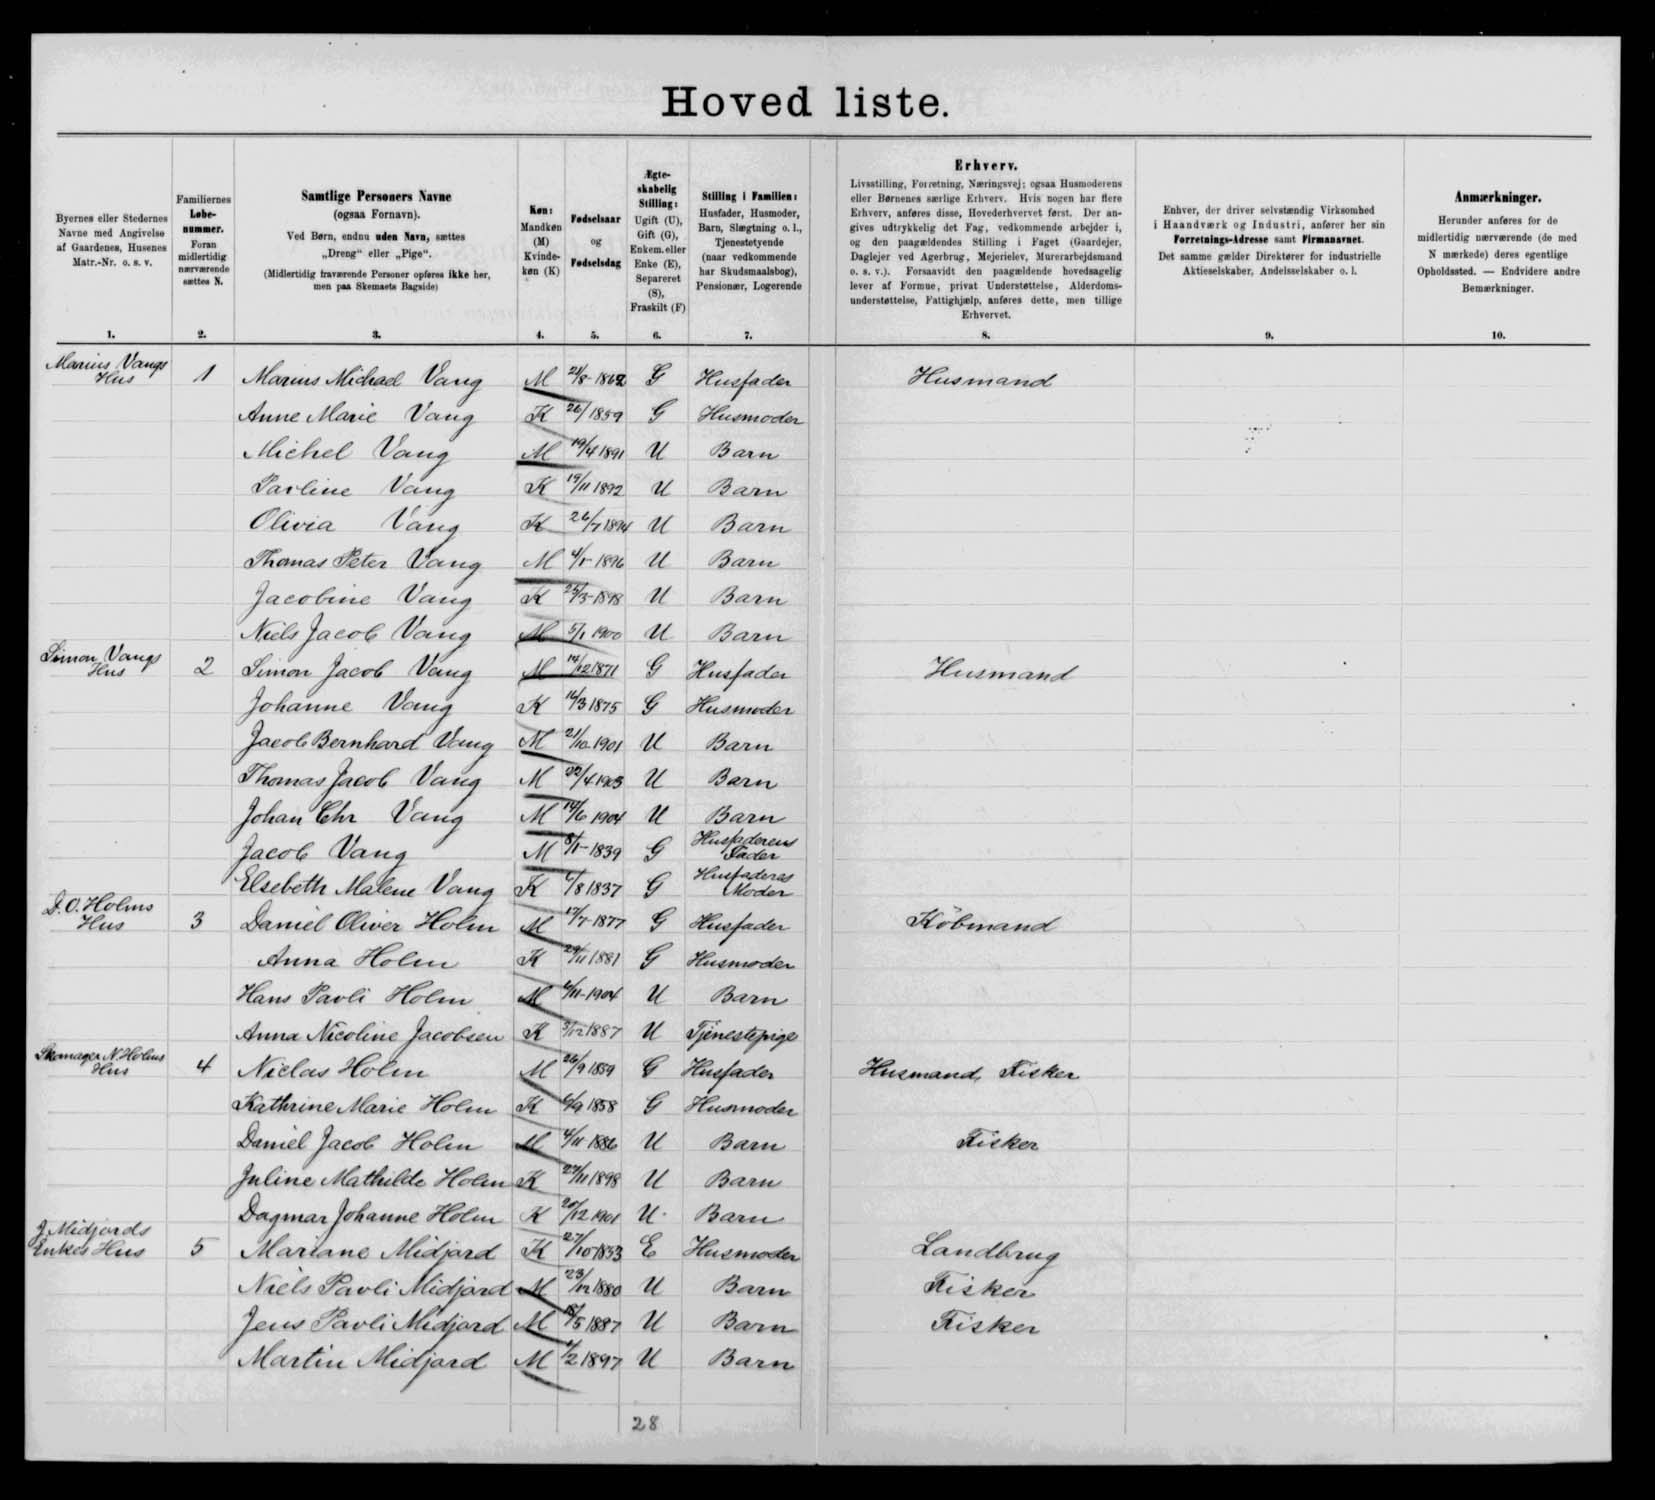 Hoved liste.
Byernes eller Stedernes
Navne med Angivelse
af Gaardenes, Husenes
Matr.-Nr. o. s. v.
1.
Familiernes
Løbe-
nummer.
Foran
midlertidig
nærværende
sættes N.
2.
Samtlige Personers Navne
(ogsaa Fornavn).
Ved Børn, endnu uden Navn, sættes
„Dreng“ eller „Pige“.
(Midlertidig fraværende Personer opføres ikke her,
men paa Skemaets Bagside)
3.
Køn:
Mandkøn
(M)
Kvinde-
køn (K)
4.
Fødselsaar
og
Fødselsdag
5.
Ægte-
skabelig
Stilling:
Ugift (U),
Gift (G),
Enkem. eller
Enke (E),
Separeret
(S),
Fraskilt (F)
6.
Stilling i Familien:
Husfader, Husmoder,
Barn, Slægtning o. l.,
Tjenestetyende
(naar vedkommende
har Skudsmaalsbog),
Pensionær, Logerende
7.
Erhverv.
Livsstilling, Forretning, Næringsvej; ogsaa Husmoderens
eller Børnenes særlige Erhverv. Hvis nogen har flere
Erhverv, anføres disse, Hovederhvervet først. Der an-
gives udtrykkelig det Fag, vedkommende arbejder i,
og den paagældendes Stilling i Faget (Gaardejer,
Daglejer ved Agerbrug, Mejerielev, Murerarbejdsmand
o. s. v.). Forsaavidt den paagældende hovedsagelig
lever af Formue, privat Understøttelse, Alderdoms-
understøttelse, Fattighjælp, anføres dette, men tillige
Erhvervet.
8.
Enhver, der driver selvstændig Virksomhed
i Haandværk og Industri, anfører her sin
Forretnings-Adresse samt Firmanavnet.
Det samme gælder Direktører for industrielle
Aktieselskaber, Andelsselskaber o. l.
9.
Anmærkninger.
Herunder anføres for de
midlertidig nærværende (de med
N mærkede) deres egentlige
Opholdssted. — Endvidere andre
Bemærkninger.
10.
Marius Vangs
Hus 1 Marius Michael Vang M 21/8-1862 G Husfader Husmand
Anne Marie Vang K 26/ 1859 G Husmoder
Michel Vang M 19/4 1891 U Barn
Pavline Vang K 19/11 1892 U Barn
Olivia Vang K 26/7 1894 U Barn
Thomas Peter Vang M 1896 U Barn
Jacobine Vang K 25/3-1898 U Barn
Niels Jacob Vang M 5/1 1900 U Barn
Simon Vangs
Hus 2 Simon Jacob Vang M 14/12 1871 G Husfader Husmand
Johanne Vang K 16/3 1875 G Husmoder
Jacob Bernhard Vang M 21/10-1901 U Barn
Thomas Jacob Vang M 22/4 1903 U Barn
Johan Chr Vang M 14/6 1904 U Barn
Jacob Vang M 8/1-1839 G Husfaderens
Fader
Elsebeth Malene Vang K 1837 G Husfaderes
Moder
D. O. Holms
Hus 3 Daniel Oliver Holm M 17/7-1877 G Husfader Köbmand
Anna Holm K 29/11 1881 G Husmoder
Hans Pavli Holm M 1904 U Barn
Anna Nicoline Jacobsen K 3/12 1887 U Tjenestepige
Skomager N. Holms
Hus 4 Niclas Holm M 26/9 1859 G Husfader Husmand, Fisker
Kathrine Marie Holm K 6/9 1858 G Husmoder
Daniel Jacob Holm M 4/11 1886 U Barn Fisker
Juline Mathilde Holm K 27/11 1898 U Barn
Dagmar Johanne Holm K 20/12 1901 U Barn
J. Midjords
Enkes Hus 5 Mariane Midjord K 27/10 1833 E Husmoder Landbrug
Niels Pavli Midjord M 23/12 1880 U Barn Fisker
Jens Pavli Midjord M 18/5 1887 U Barn Fisker
Martin Midjord M 1897 U Barn
28